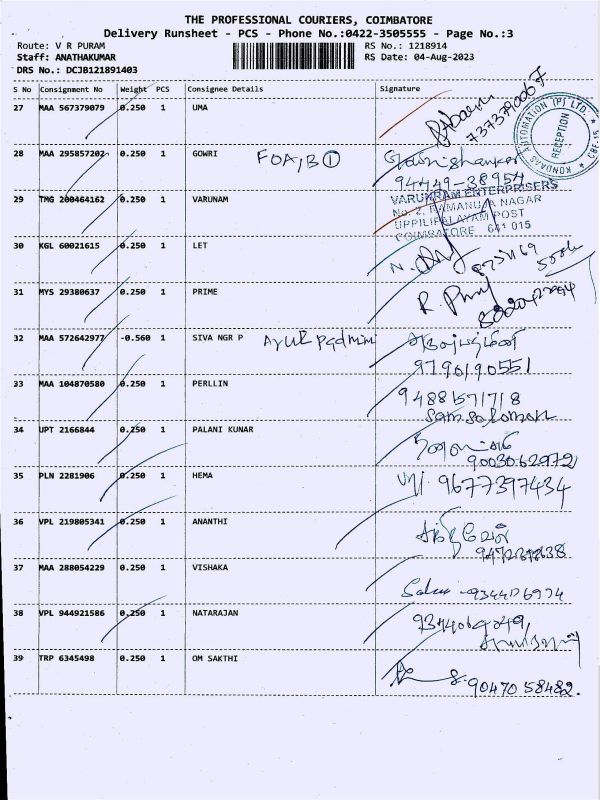 THE PROFESSIONAL COURIERS, COIMBATORE
Delivery Runsheet - PCS - Phone No.:0422-3505555 - Page No.:3
Route: V R PURAM RS No.: 1218914
Staff: ANATHAKUMAR RS Date: 04-Aug-2023
DRS No.: DCJB121891403
S No Consignment No Weight PCS Consignee Details Signature
27 MAA 567379079 0.250 1 UMA
KONDAAS AUTOMATION (P) LTD. * CBE-15 *
RECEPTION
28 MAA 295857202 0.250 1 GOWRI FOA,B ① Gowrishankar
94449-38954
29 TMG 200464162 0.250 1 VARUNAM VARUNRAM ENTERPRISERS
No. 2, RAMANUJA NAGAR
UPPILIPALAYAM POST
COIMBATORE 641 015
30 KGL 60021615 0.250 1 LET
31 MYS 29380637 0.250 1 PRIME
32 MAA 572642977 -0.560 1 SIVA NGR P
9796190551
33 MAA 104870580 0.250 1 PERLLIN 9488571718
Samsolomon
34 UPT 2166844 0.250 1 PALANI KUNAR
9003062972
35 PLN 2281906 0.250 1 HEMA 9677397434
36 VPL 219805341 0.250 1 ANANTHI
37 MAA 288054229 0.250 1 VISHAKA
38 VPL 944921586 0.250 1 NATARAJAN
39 TRP 6345498 0.250 1 OM SAKTHI
9047058482.